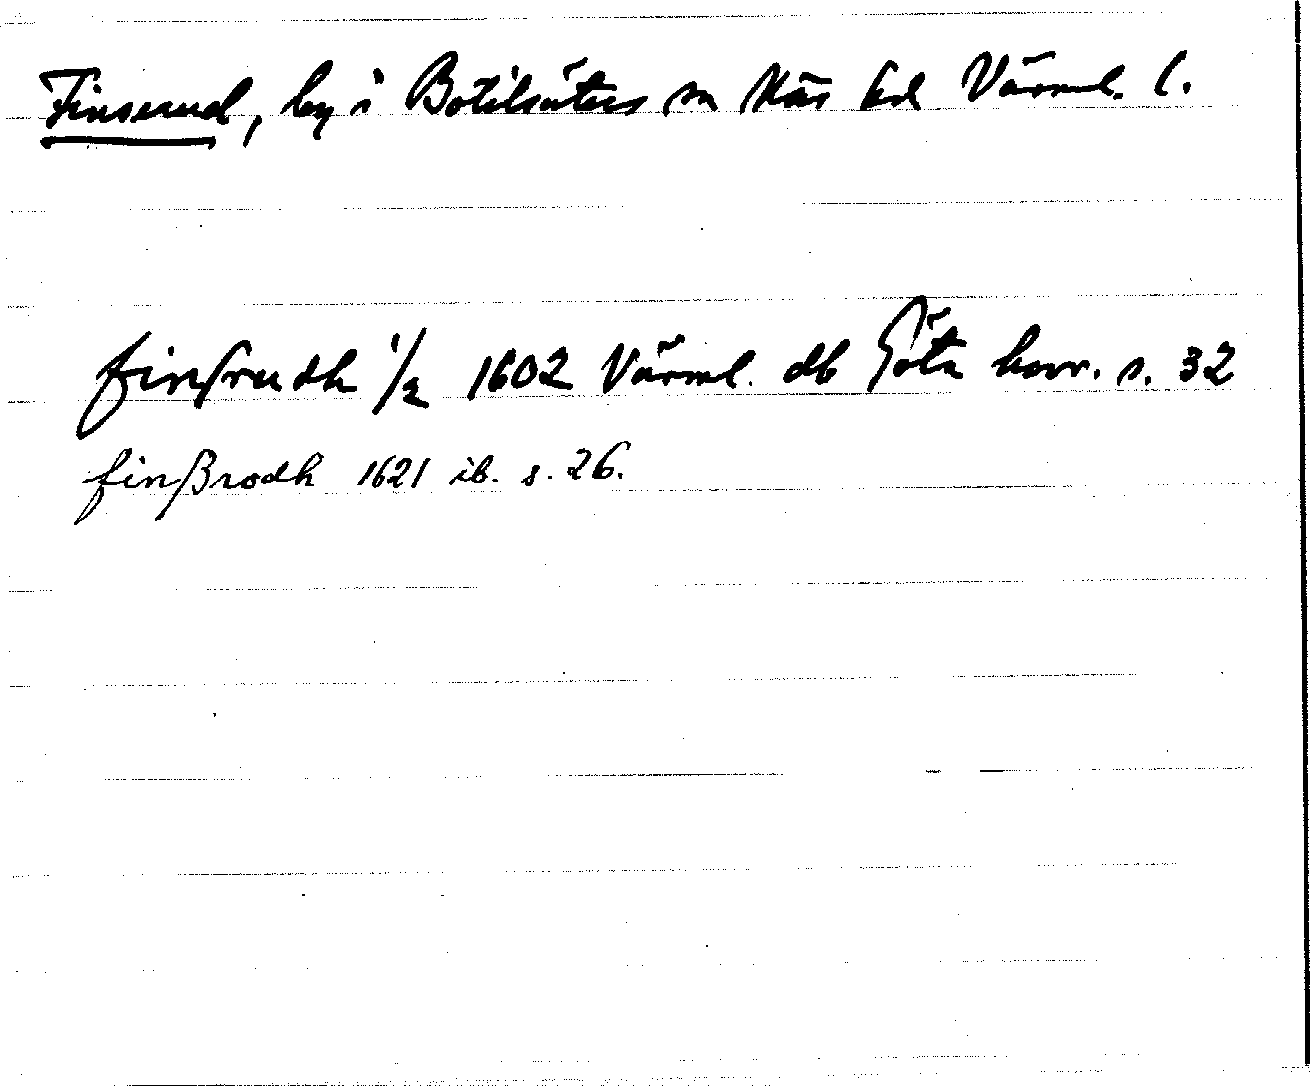 Finserud, by i Botilsäters sn Näs hd Värml. l.
finßrudh 1/2 1602 Värml. db Göta hovr. s. 32
finßrodh 1621 ib. s. 26.